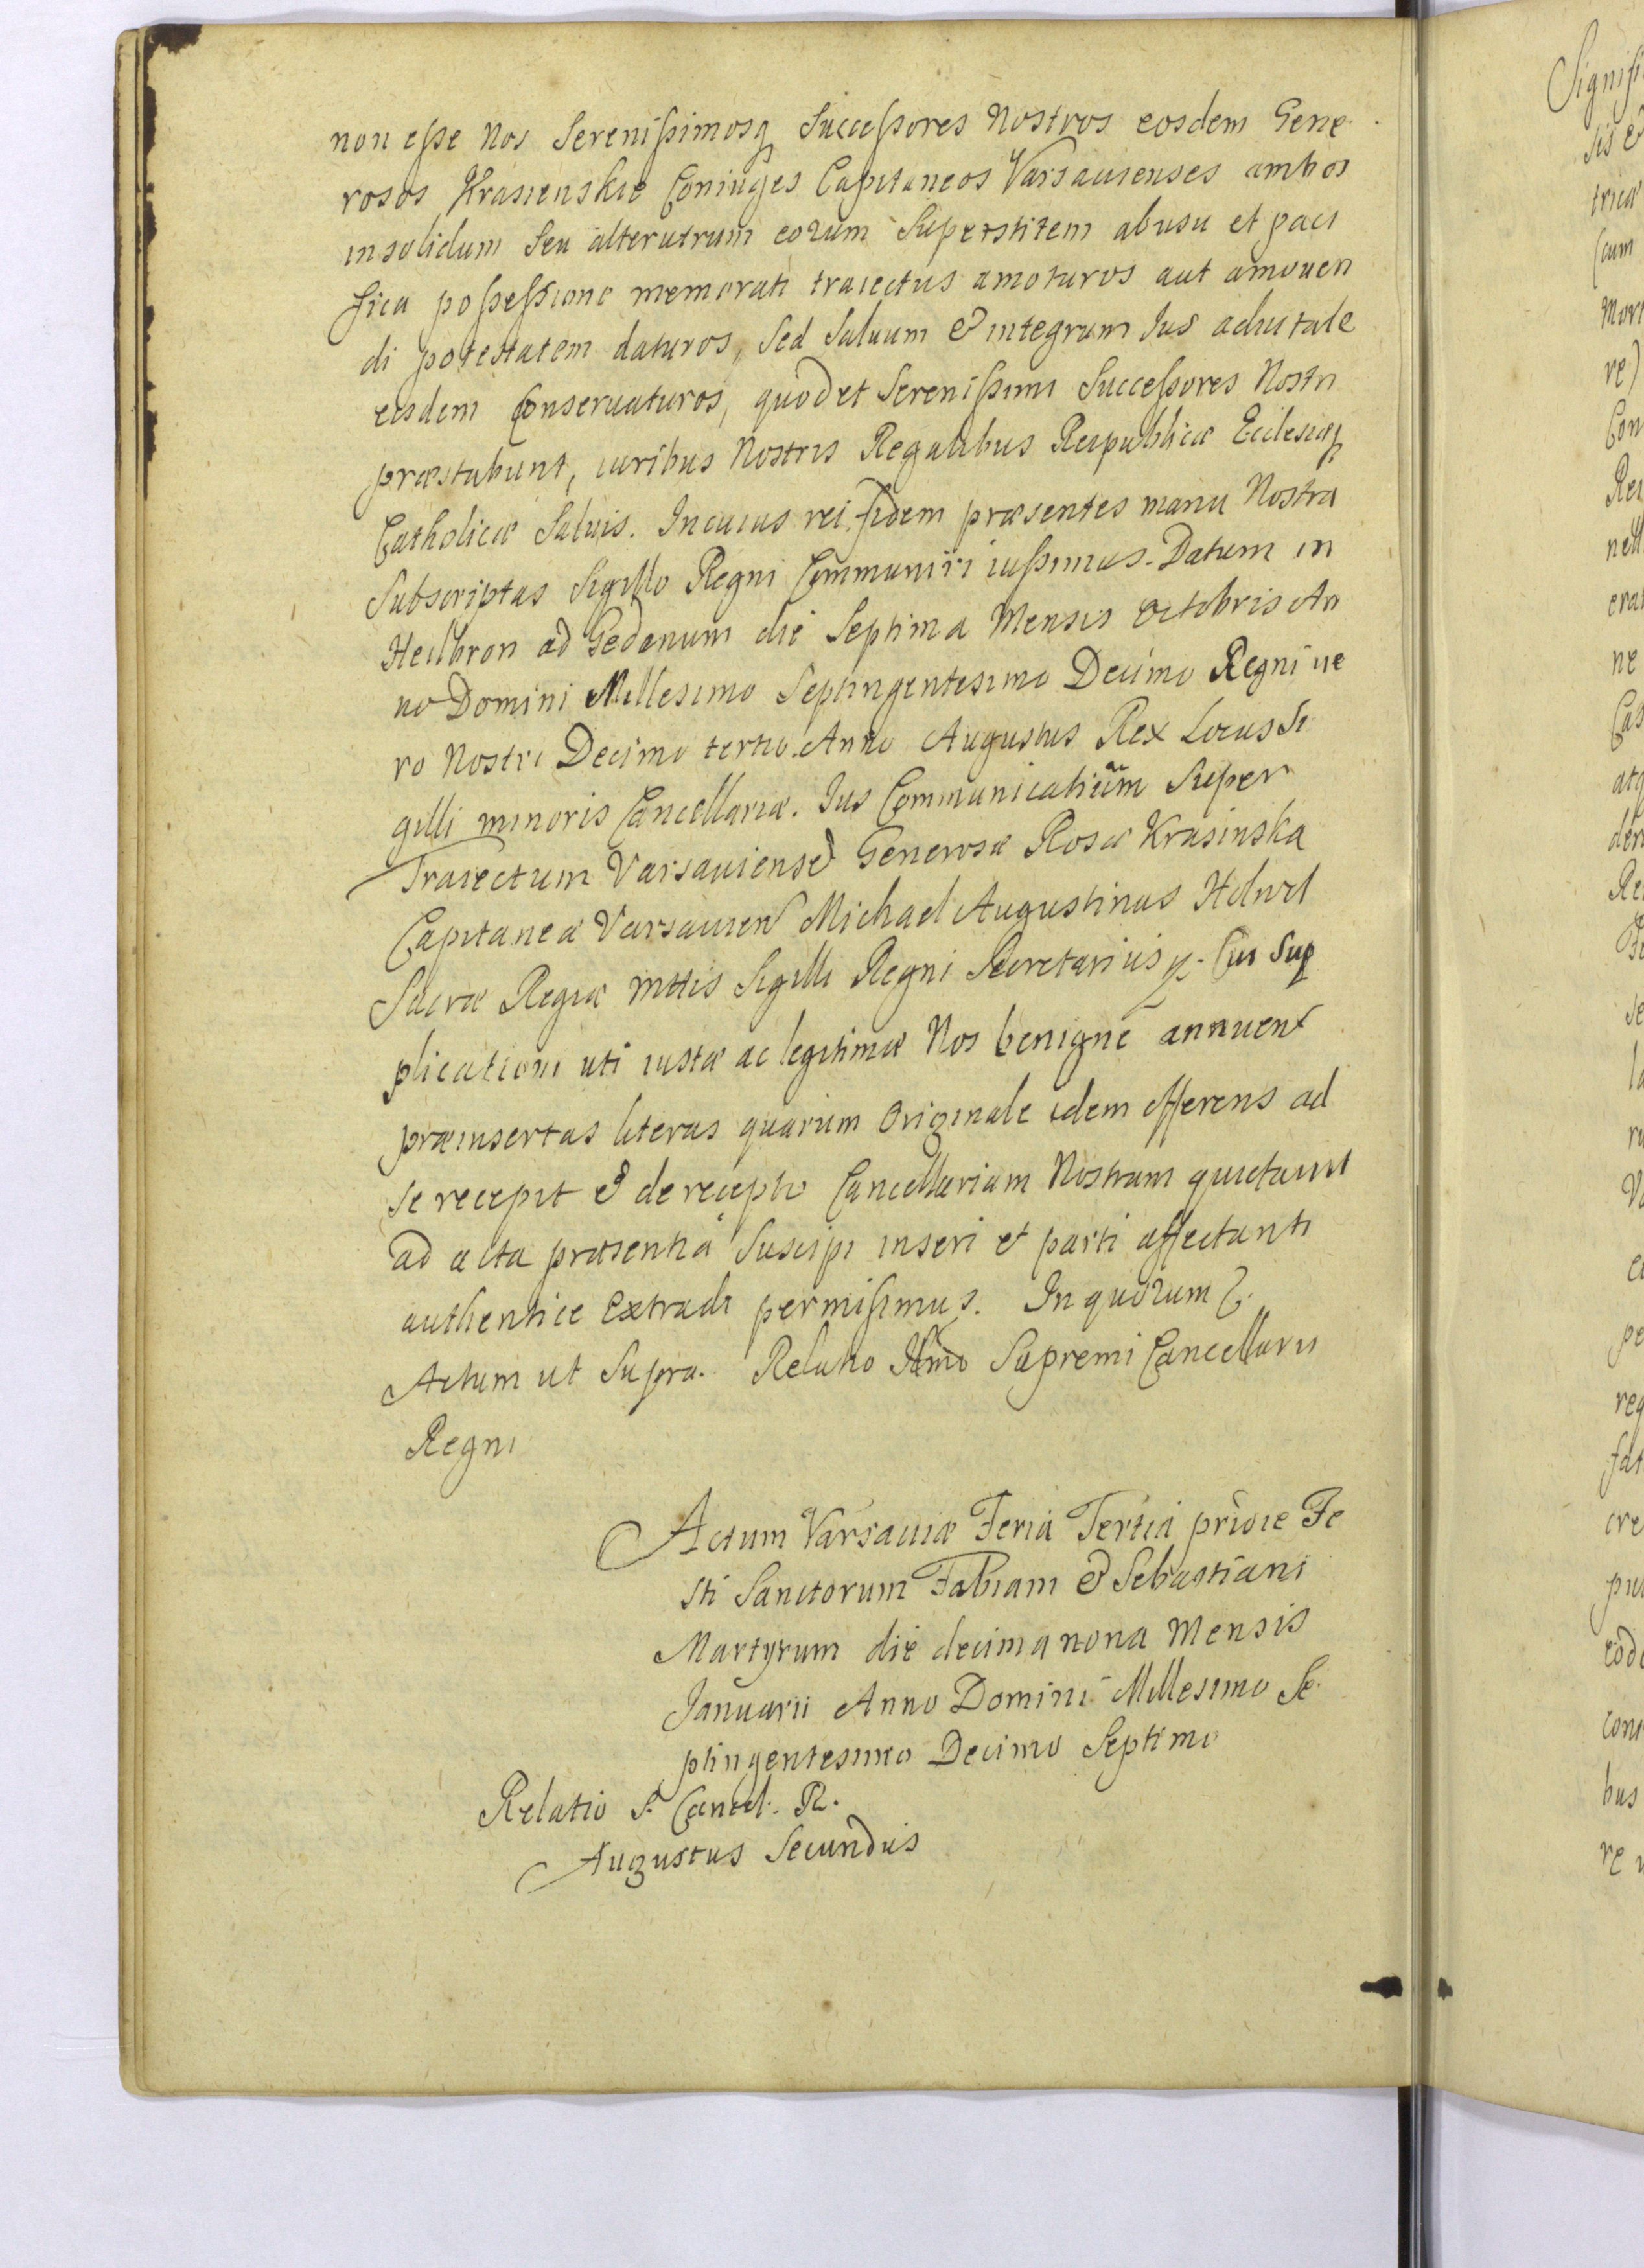 non eſse Nos Sereniſsimosq Succeſsores Nostros eosdem Gene
rosos Krasienskie Coniuges Capitaneos Varsauienses ambos
in solidum Seu alterutrum eorum Superstitem ab usu et paci
fica poſseſsione memorati traiectus amoturos aut amouen
di potestatem daturos, Sed Saluum & integrum Ius aduitale
eisdem Conseruaturos, quod et Sereniſsimi Succeſsores Nostri
præstabunt, iuribus Nostris Regalibus Reipublicæ Eccleseiæq
Catholicæ Saluis. In cuius rei fidem præsentes manu Nostra
Subscriptas Sigillo Regni Communiri iuſsimus. Datum in
Heilbron ad Gedanum die Septima Mensis Octobris An
no Domini Millesimo Septingentesimo Decimo Regni ue
ro Nostri Decimo tertio Anno Augustus Rex Locus Si
gilli minoris Cancellariæ. Ius Communicatiuum Super
Traiectum Varsauiense Generosæ Rosæ Krasinska
Capitaneæ Varsauien Michael Augustinus
Sacræ Regiæ Mttis Sigilli Regni Secretarius Cui Sup
plicationi uti iustæ ac legitimæ Nos benigne annuent
præinsertas literas quarum Originale idem offerens ad
se recepit & de recepto Cancellariam Nostram quietauit
ad acta præsentia Suscipi inseri et parti affectanti
authentice Extradi permiſsimus. In quorum
Actum ut Supra. Relatio Supremi Cancellarii
Regni
Actum Varsauiæ Feria Tertia pridie Fe
sti Sanctorum Fabiani & Sebastiani
Martyrum die decima nona Mensis
Januarii Anno Domini Millesimo Se
ptingentesimo Decimo Septimo
Relatio S. Cancel. R.
Augustus Secundus